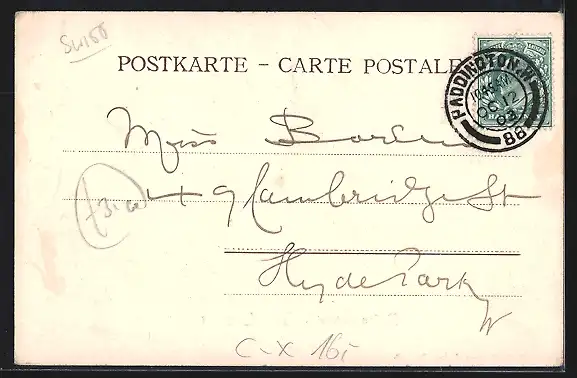 Swiss
POSTKARTE – CARTE POSTALE
PADDINGTON. W.
OC 12
03
88
Miss
49 Cambridge St
Hyde Park
W
C-X 16i